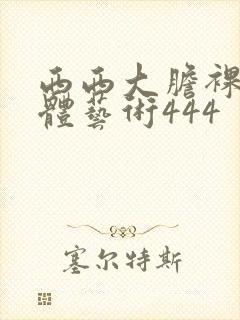 西西大膽裸
體藝術444
塞尔特斯